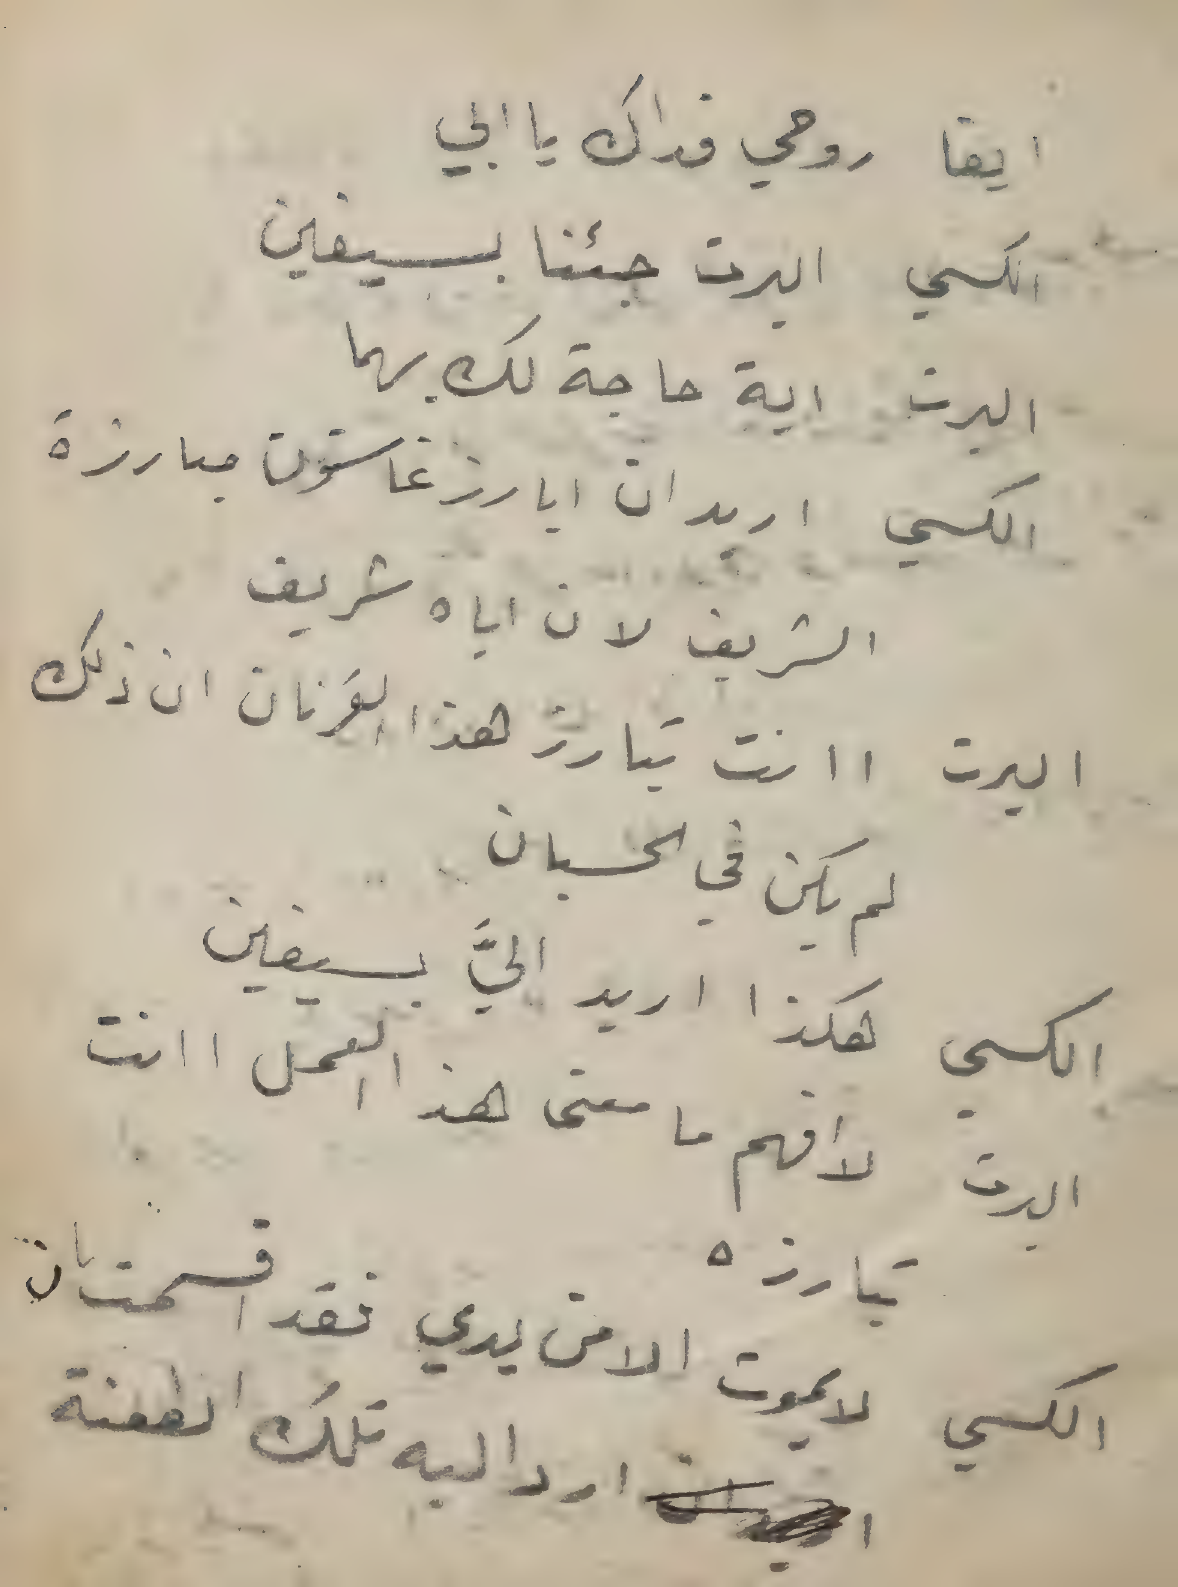 ايڤا روحي فداك يا ابي
الكسي البرت جئنا بسيفين
البرت اية حاجة لك بهما
الكسي اريد ان ابارز غاستون مبارزة
الشريف لان اباه شريف
البرت اانت تبارز هذا القرنان ان ذلك
لم يكن في الحسبان
الكسي هكذا اريد اليَّ بسيفين
البرت لا افهم ما معنى هذا العمل اانت
تبارزه
الكسي لا يموت الا من يدي فقد اقسمت بان
ارد اليه تلك الطعنة